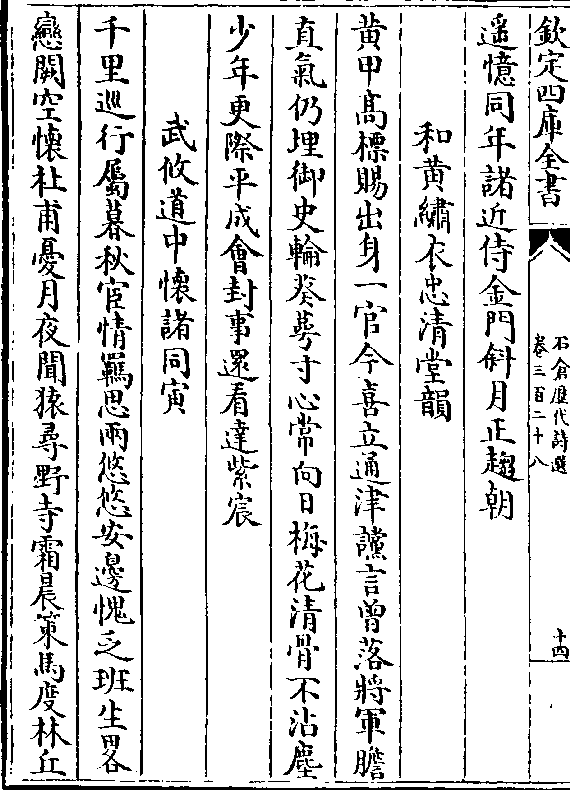 欽定四庫全書
石倉歷代詩選
卷三百二十八
十四
遥憶同年諸近侍金門斜月正趨朝
和黄繡衣忠清堂韻
黄甲髙標賜出身一官今喜立通津讜言曽落將軍膽
直氣仍埋御史輪葵萼寸心常向日梅花清骨不沾塵
少年更際平成會封事還看達紫宸
武攸道中懐諸同寅
千里巡行屬暮秋宦情羈思兩悠悠安邊愧乏班生畧
戀闕空懐社甫憂月夜聞猿尋野寺霜晨策馬度林丘